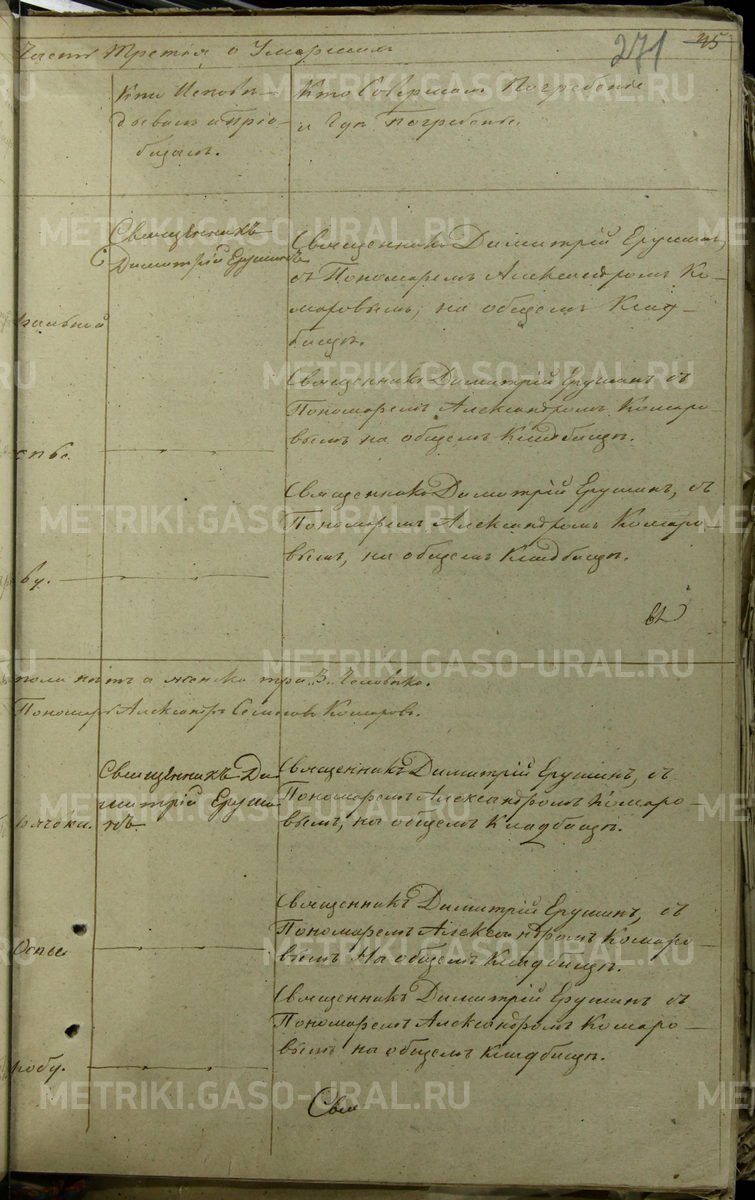 Часть Третья о Умершихъ
271
45
Кто Исповѣ-
дывалъ и Прiо-
бщалъ.
Кто Совершалъ Погребенiе
и Гдѣ Погребены
Священникъ
Димитрiй Ерушинъ
Священникъ Димитрiй Ерушинъ,
съ Пономаремъ Александромъ Ко-
маровымъ, на общемъ Клад-
бищѣ.
Священникъ Димитрiй Ерушинъ съ
Пономаремъ Александромъ Комаро-
вымъ на общемъ Кладбищѣ.
Священникъ Димитрiй Ерушинъ, съ
Пономаремъ Александромъ Комаро-
вымъ, на общемъ Кладбищѣ.
пола а женска три "3" Человѣка.
Пономарь Александръ Комаровъ.
Священникъ Ди-
митрiй Еруши-
нъ
Священникъ Димитрiй Ерушинъ, съ
Пономаремъ Александромъ Комаро-
вымъ, на общемъ Кладбищѣ.
Оспы
Священникъ Димитрiй Ерушинъ, съ
Пономаремъ Александромъ Комаро-
вымъ На общемъ Кладбищѣ.
Священникъ Димитрiй Ерушинъ съ
Пономаремъ Александромъ Комаро-
вымъ на общемъ Кладбищѣ.
Свя
METRIKI.GASO-URAL.RU